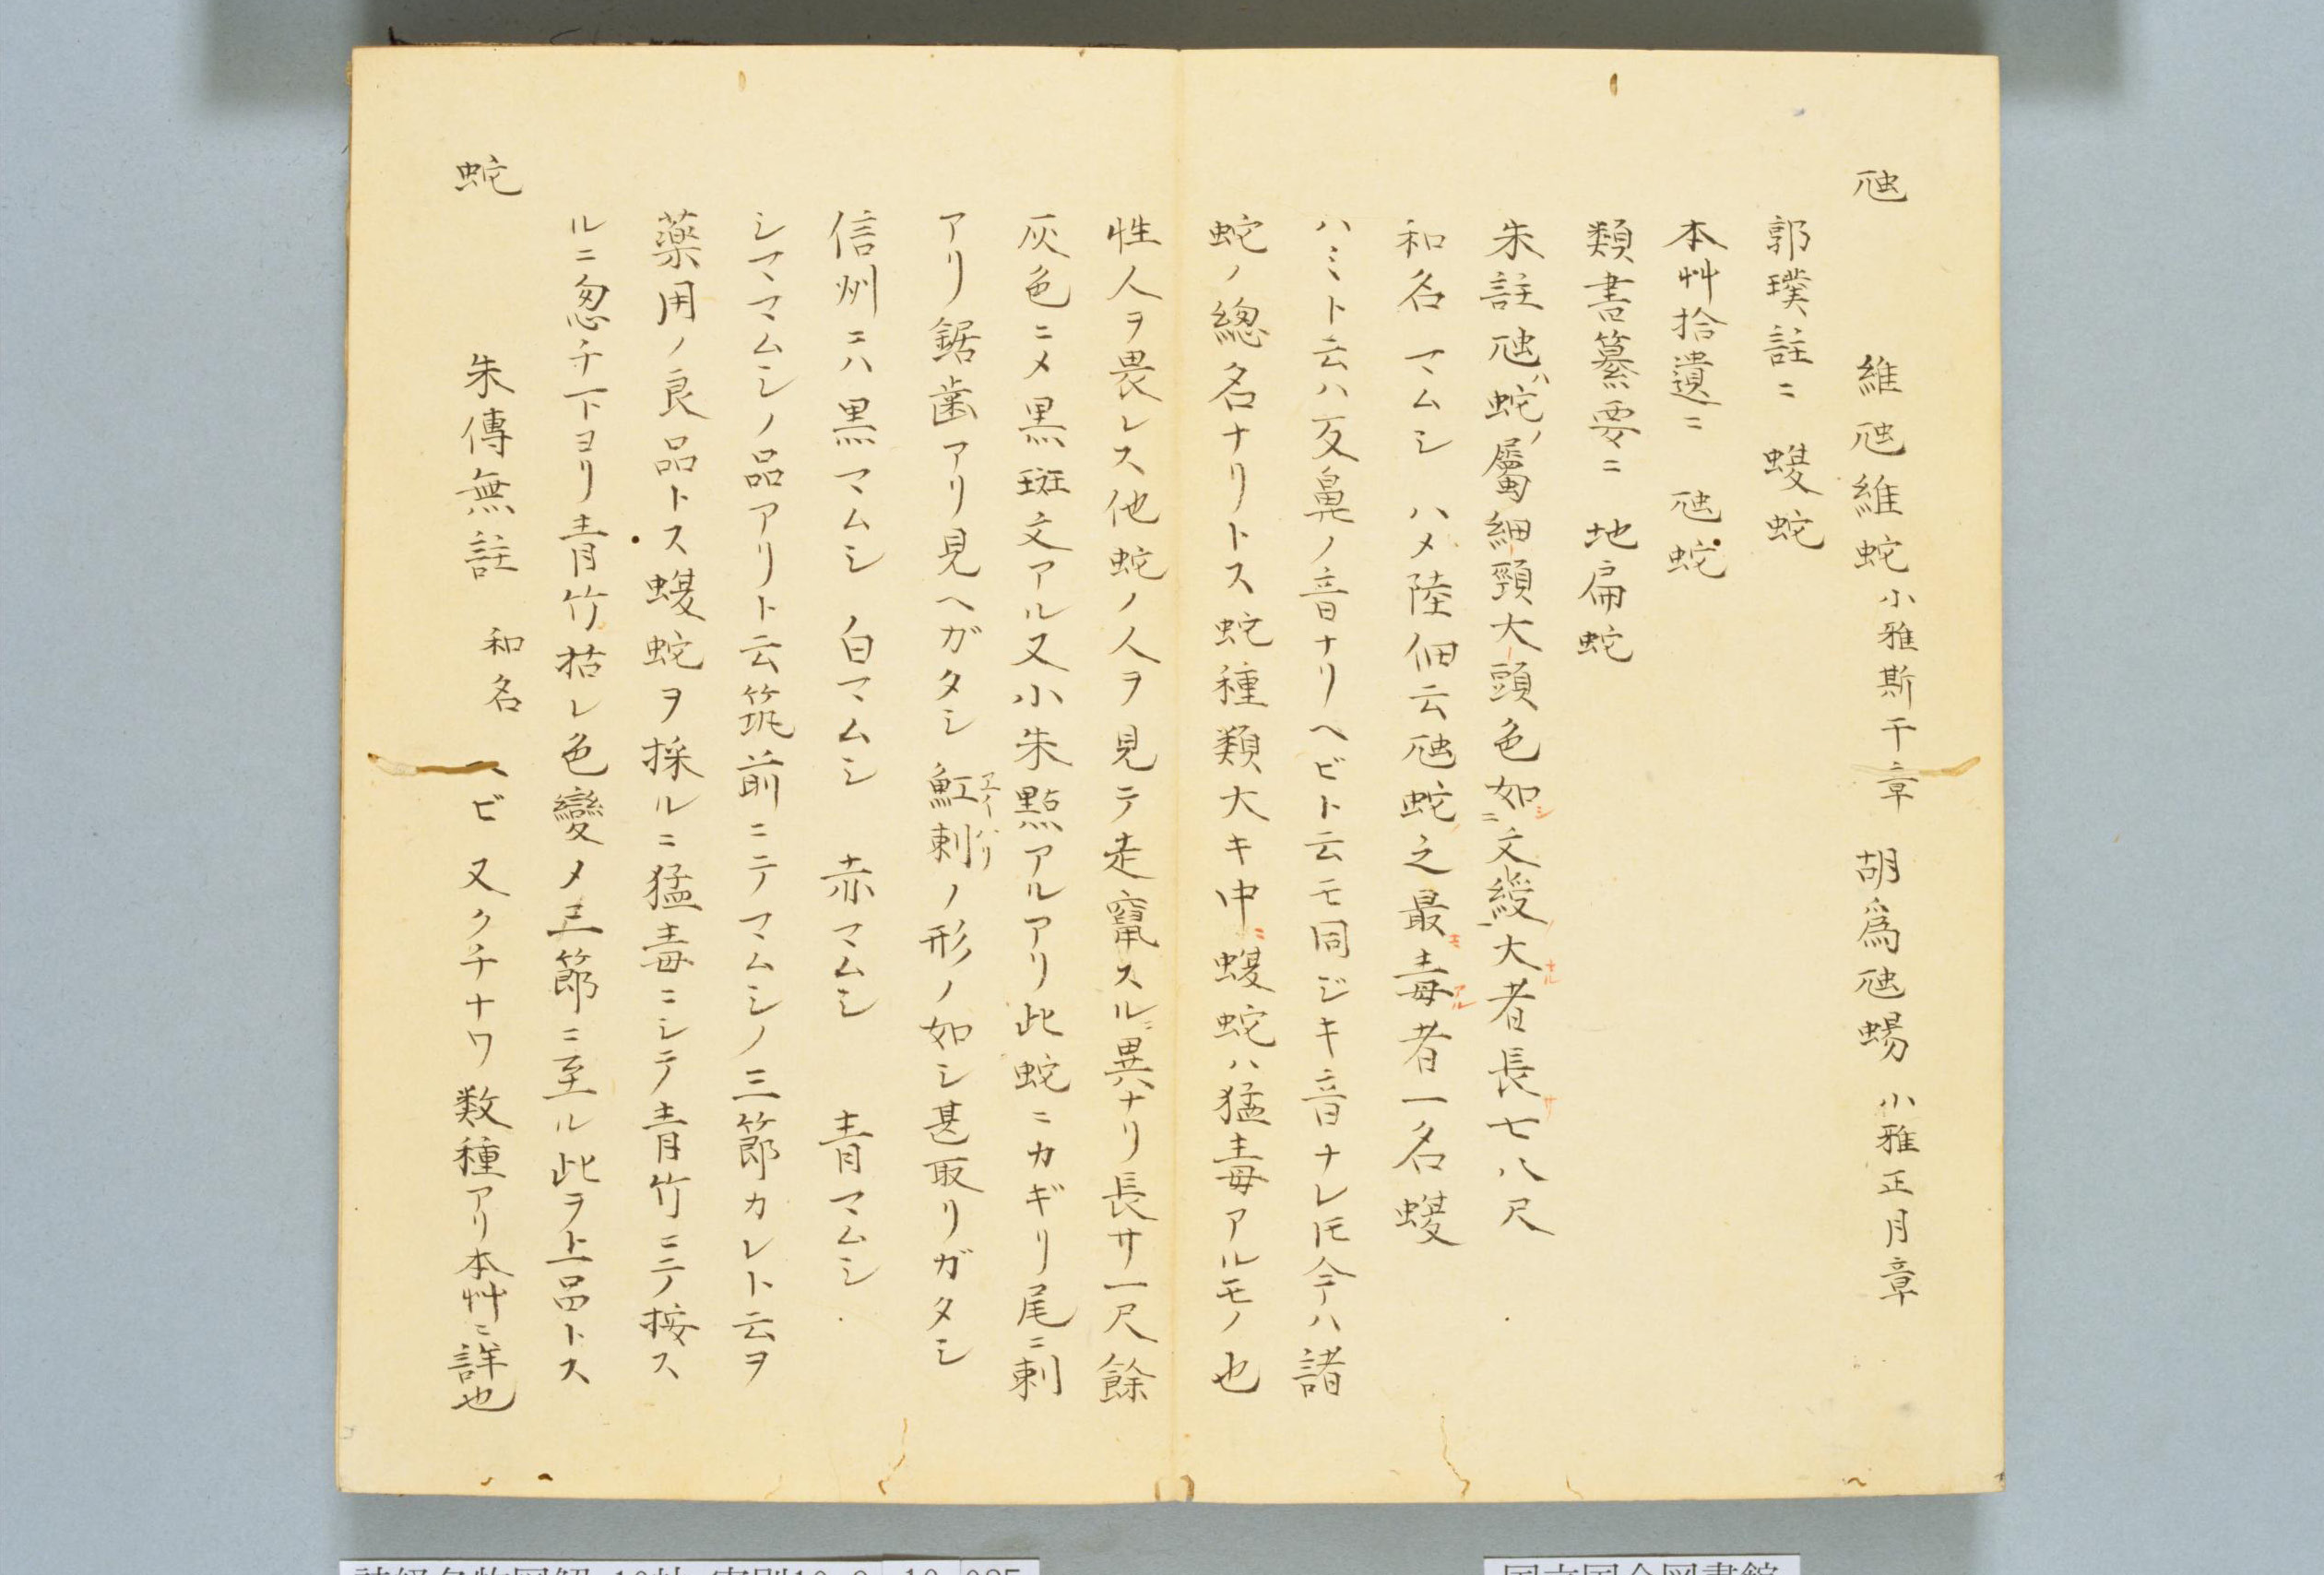 虺　維虺維蛇小雅斯干章　胡爲虺蜴小雅正月章
郭璞註ニ　蝮蛇
本艸拾遺ニ　虺蛇
類書纂要ニ　地扁蛇
朱註虺ハ蛇ノ屬細頸大頭色如シ二文綬一大ナル者長サ七八尺
和名　マムシ　ハメ陸佃云虺蛇之最モ毒アル者一名蝮
ハミト云ハ反鼻ノ音ナリヘビト云モ同ジキ音ナレ𪜈今テハ諸
蛇ノ總名ナリトス蛇種類大キ中ニ蝮蛇ハ猛毒アルモノ也
性人ヲ畏レス他蛇ノ人ヲ見テ走竄スルニ異ナリ長サ一尺餘
灰色ニメ黒斑文アル又小朱點アルアリ此蛇ニカギリ尾ニ刺
アリ鋸歯アリ見ヘガタシ魟刺ノ形ノ如シ甚取リガタシ
エイハリ
信州ニハ黒マムシ　白マムシ　赤マムシ　青マムシ
シマヽムシノ品アリト云筑前ニテマムシノ三節カレト云ヲ
藥用ノ良品トス蝮蛇ヲ採ルニ猛毒ニシテ青竹ニテ按ス
ルニ忽チ下ヨリ青竹枯レ色變メ三節ニ至ル此ヲ上品トス
蛇　朱傳無註　和名　ヘビ又クチナワ数種アリ本艸ニ詳也
国立国会図書館